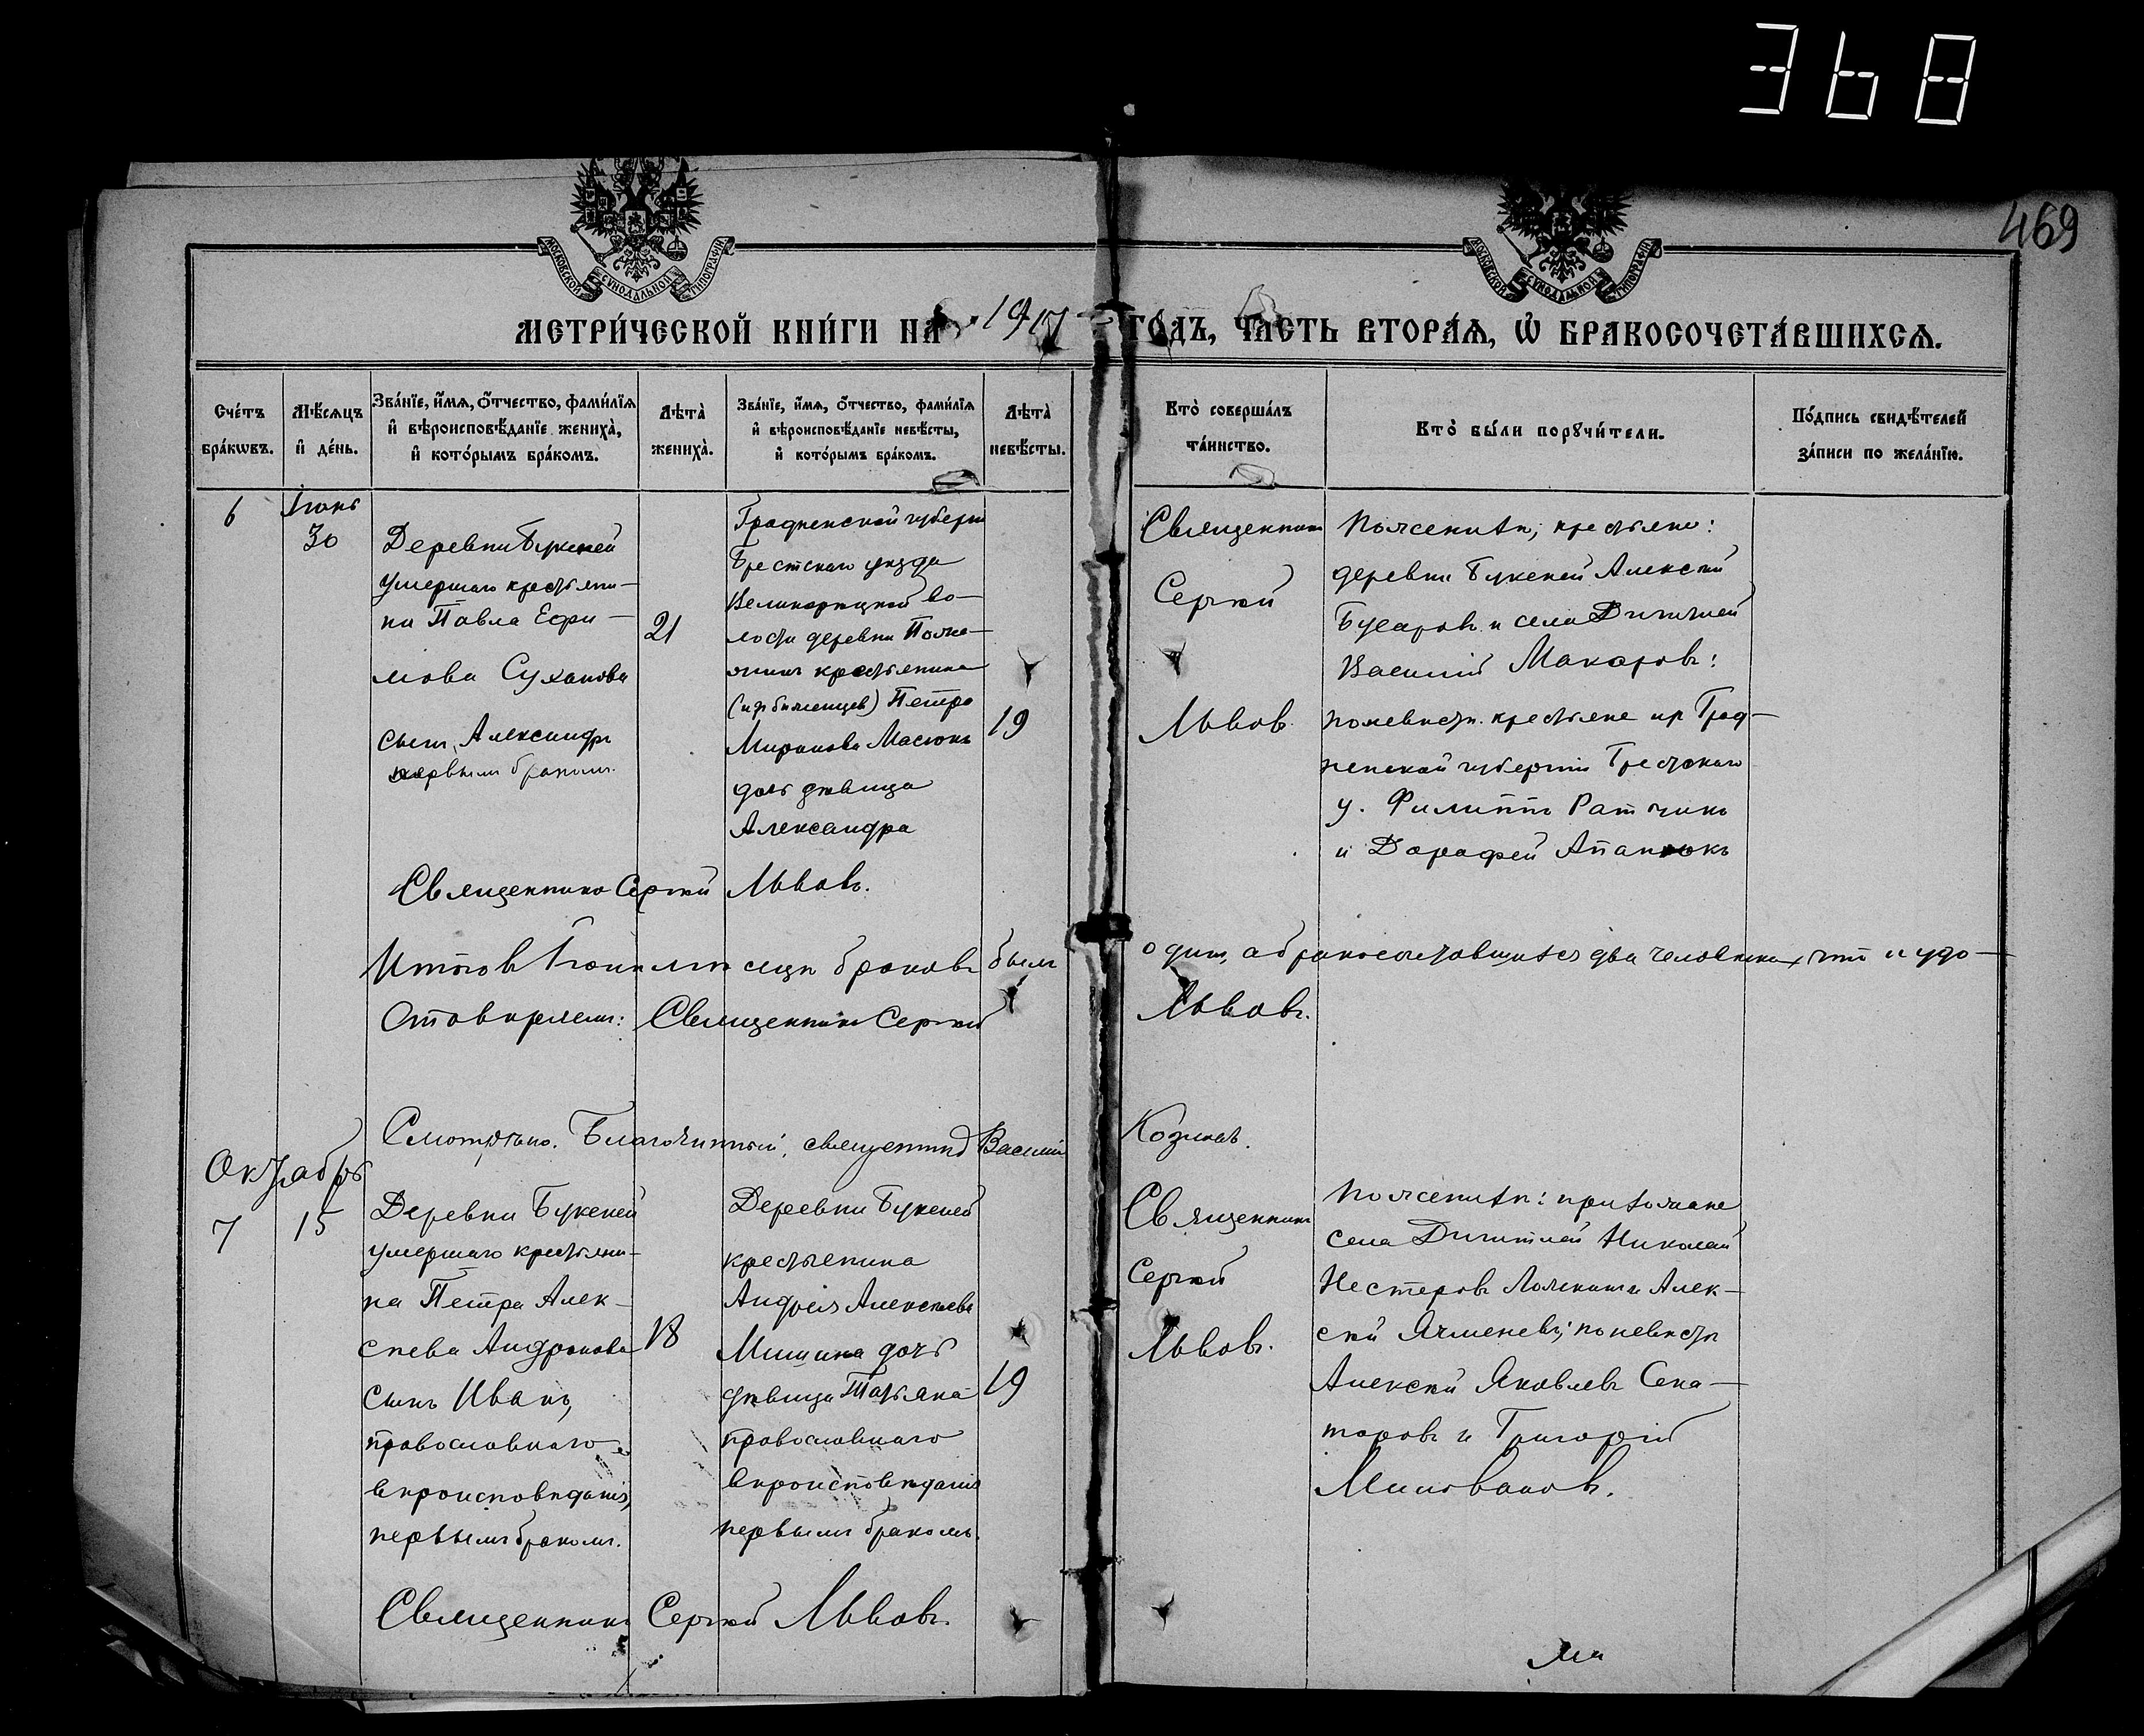 368
469
МОСКОВСКОЙ СѴНОДАЛЬНОЙ ТИПОГРАФІИ
МОСКОВСКОЙ СѴНОДАЛЬНОЙ ТИПОГРАФІИ
МЕТРИ́ЧЕСКОЙ КНИ́ГИ НА 1917 ГО́ДЪ, ЧА́СТЬ ВТОРА́Ѧ, Ѽ БРАКОСОЧЕТА́ВШИХСѦ.
Сче́тъ бра́кѡвъ.
Мѣ́сѧцъ и҆ де́нь.
Зва́нїе, и҆́мѧ, ѻ҆́тчество, фами́лїѧ и҆ вѣроисповѣ́данїе жениха̀, и҆ кото́рымъ бра́комъ.
Лѣта̀ жениха̀.
Зва́нїе, и҆́мѧ, ѻ҆́тчество, фами́лїѧ и҆ вѣроисповѣ́данїе невѣ́сты, и҆ кото́рымъ бра́комъ.
Лѣта̀ невѣ́сты.
Кто̀ соверша́лъ та́инство.
Кто̀ бы́ли порꙋчи́тели.
По́дпись свидѣ́телей за́писи по жела́нїю.
6
30
Деревни Букеней
умершаго крестьяни-
на Павла Ефи-
мова Суханова
сынъ Александръ
первымъ бракомъ.
21
Гродненской губерн
Брестскаго уѣзда
во-
лости деревни
крестьянина
Петра
Миронова Масюкъ
дочь дѣвица
Александра
19
Священникъ
Сергій
Львовъ.
По женихѣ, крестьяне:
деревни Букеней Алексѣй
и села
Василій Макаровъ:
по невѣстѣ крестьяне изъ Грод-
ненской губерніи Брестскаго
у. Филиппъ Ратчикъ
и Дорофей Апанюкъ
Священникъ Сергій Львовъ.
Итого въ мѣсяцѣ браковъ былъ одинъ, а бракосочетавшихся два человѣка, что и удо-
стовѣряемъ: Священникъ Сергій Львовъ.
Смотрѣно. Благочинный, священникъ Василій Козловъ.
Октябрь
7
15
Деревни Букеней
умершаго крестьяни-
на Петра Алек-
сѣева Андронова
сынъ Иванъ,
православнаго
вѣроисповѣданія,
первымъ бракомъ.
18
Деревни Букеней
крестьянина
Андрея Алексѣева
Мишина дочь
дѣвица Татьяна
православнаго
вѣроисповѣданія
первымъ бракомъ.
19
Священникъ
Сергій
Львовъ.
По женихѣ: прихожане
села Николай
Нестеровъ и Алек-
сѣй Ячменевъ; по невѣстѣ
Алексѣй Яковлевъ Сена-
торовъ и Григорій
Миловановъ.
Священникъ Сергій Львовъ.